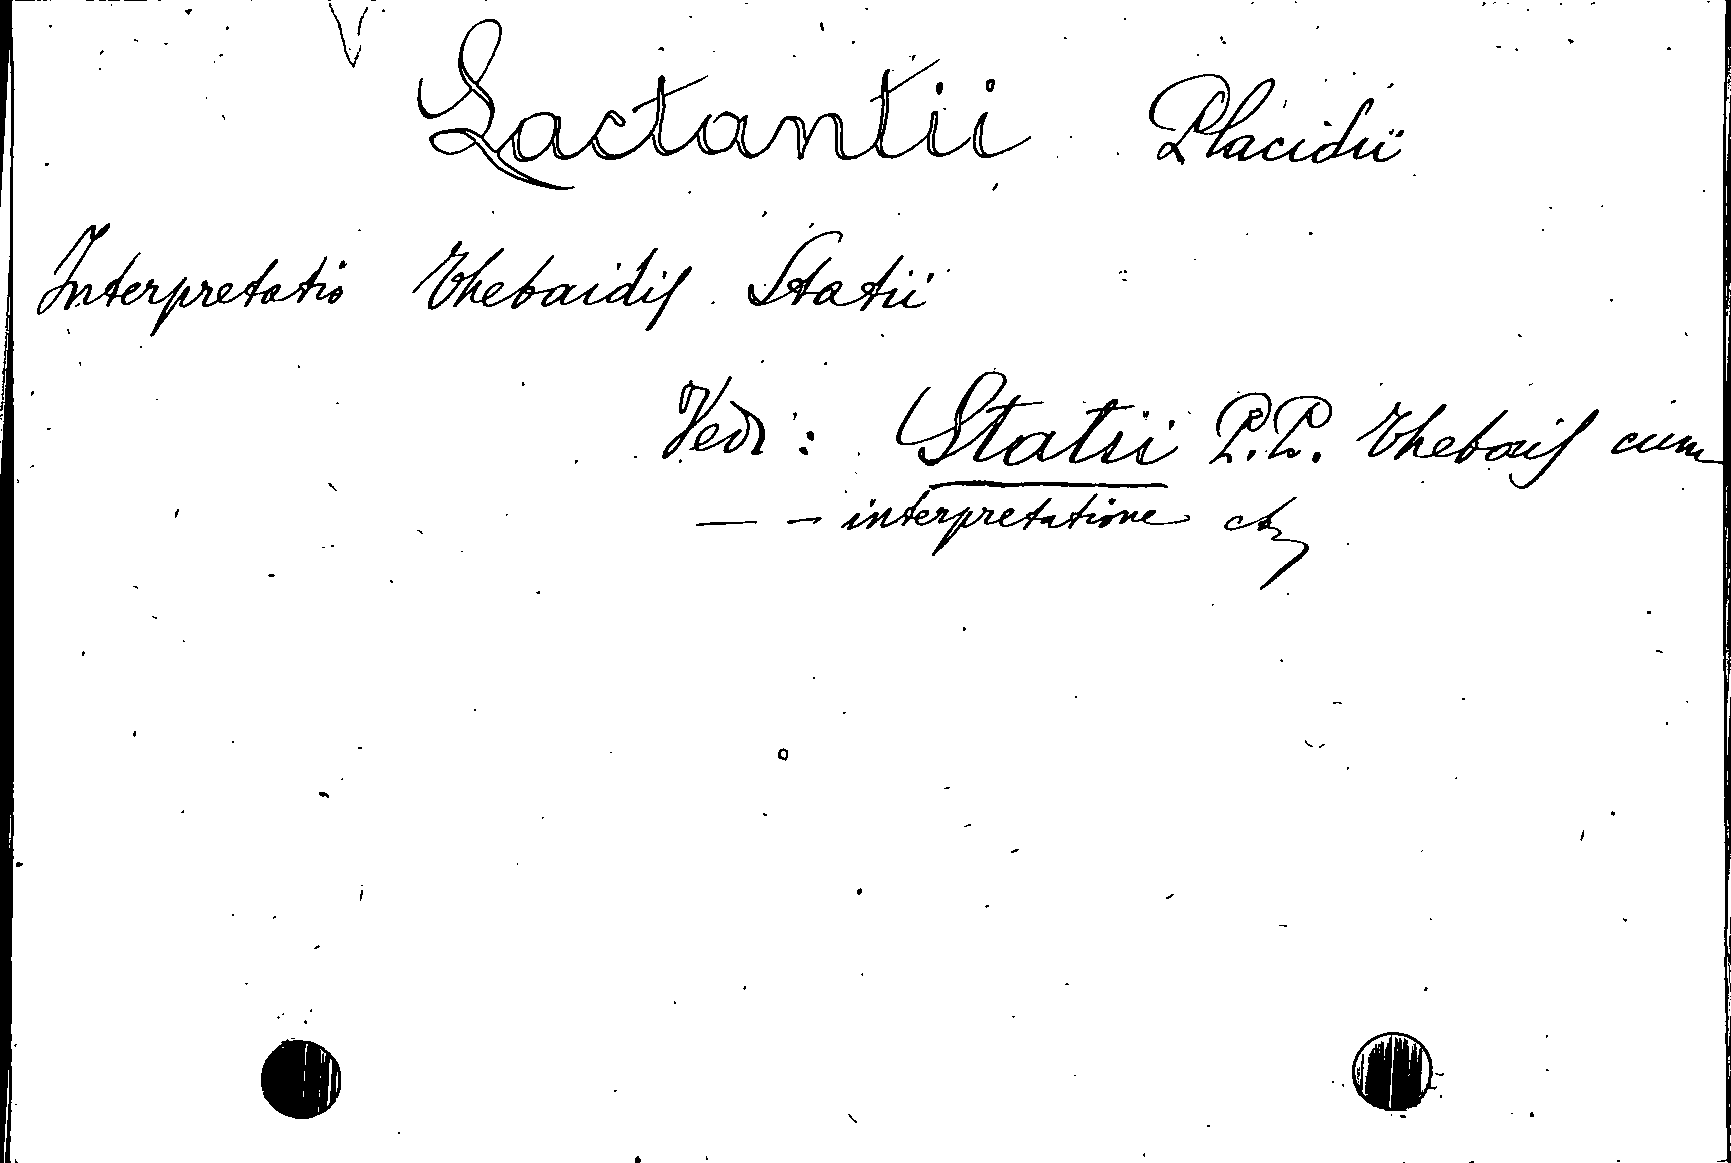 Lactantii Placidii
Interpretatio Thebaidis Statii
Vedi: Statii P.P. Thebais cum
— — interpretatione etc